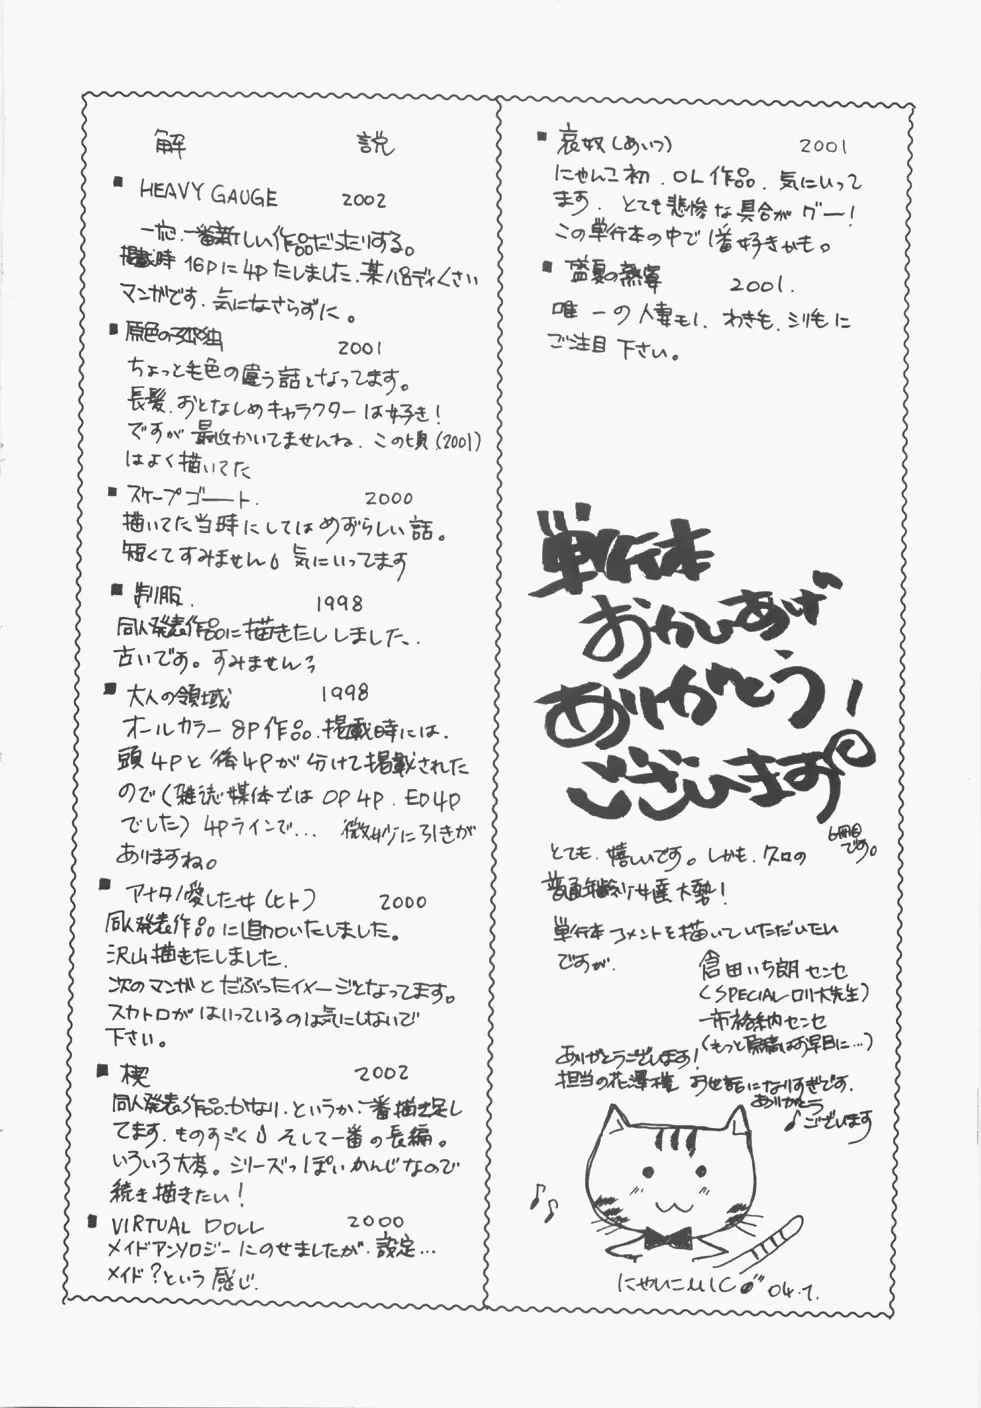 解 説
■ HEAVY GAUGE 2002
一応、一番新しい作品だったりする。
掲載時 16Pに4Pたしました、某パロディくさい
マンガです。気になさらずに。
■ 原色の孤独
2001
ちょっと毛色の違う話となってます。
長髪、おとなしめキャラクターは好き!
ですが 最近かいてませんね、この頃(2001)
はよく描いてた
■ スケープゴート. 2000
描いてた当時にしてはめずらしい話。
短くてすみません 気にいってます
■ 制服. 1998
同人発表作品に描きたししました、
古いです。すみませんっ
■ 大人の領域 1998
オールカラー 8P作品、掲載時には、
頭4Pと後4Pが分けて掲載された
ので(雑誌媒体では OP4P、ED4P
でした)4Pラインで… 微妙に引きが
ありますね。
■ アナタノ愛した女(ヒト) 2000
同人発表作品に追加いたしました。
沢山描きたしました、
次のマンガとだぶったイメージとなってます。
スカトロがはいっているのは気にしないで
下さい。
■ 楔 2002
同人発表作品、かなり、というか、一番描き足し
てます、ものすごく そして一番の長編。
いろいろ大変。シリーズっぽいかんじなので
続き描きたい!
■ VIRTUAL DOLL 2000
メイドアンソロジーにのせましたが、設定…
メイド?という感じ
■ 哀奴(あいつ) 2001
にゃんこ初、OL作品、気にいって
ます、とても悲惨な具合がグー!
この単行本の中で1番好きかも。
■ 盛夏の熱宴 2001.
唯一の人妻もし、わきも、シリ毛に
ご注目下さい。
単行本
おかいあげ
ありがとう!
ございます
6冊目です。
とても、嬉しいです。しかも、クロの
普通年齢もの大勢!
単行本コメントを描いていただいたい
ですが、
倉田いち朗センセ
(SPECIALロリ大先生)
一市稀納センセ
(もっと原稿はお早目に…)
ありがとうございます!
担当の花澤様 お世話になりすぎです、
ありがとう
♪ございます
にゃんこMIC 04.7.